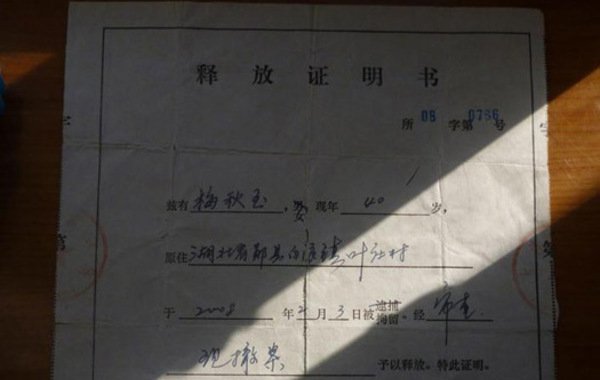 释放证明书
所 08 字第 0786 号
兹有 梅秋玉 ,女 现年 40 岁,
原住 湖北省郧县白浪镇叶红村
于 2008 年 2 月 3 日被逮捕拘留。经 审查
现撤案 予以释放。特此证明。
字
第
字
第